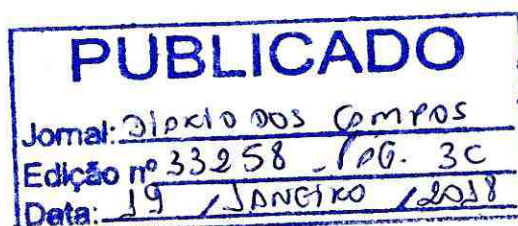 PUBLICADO
Jornal: DIARIO DOS CAMPOS
Edição nº 33258 - PAG. 3C
Data: 19 / JANEIRO / 2018